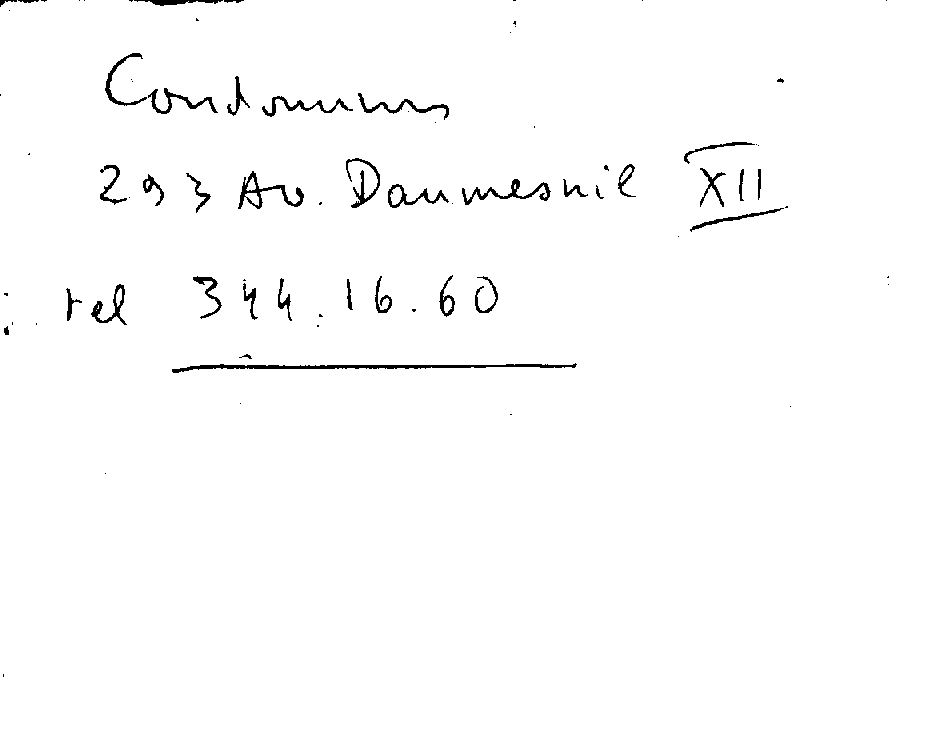 293 Av. Daumesnil XII
tel 344.16.60